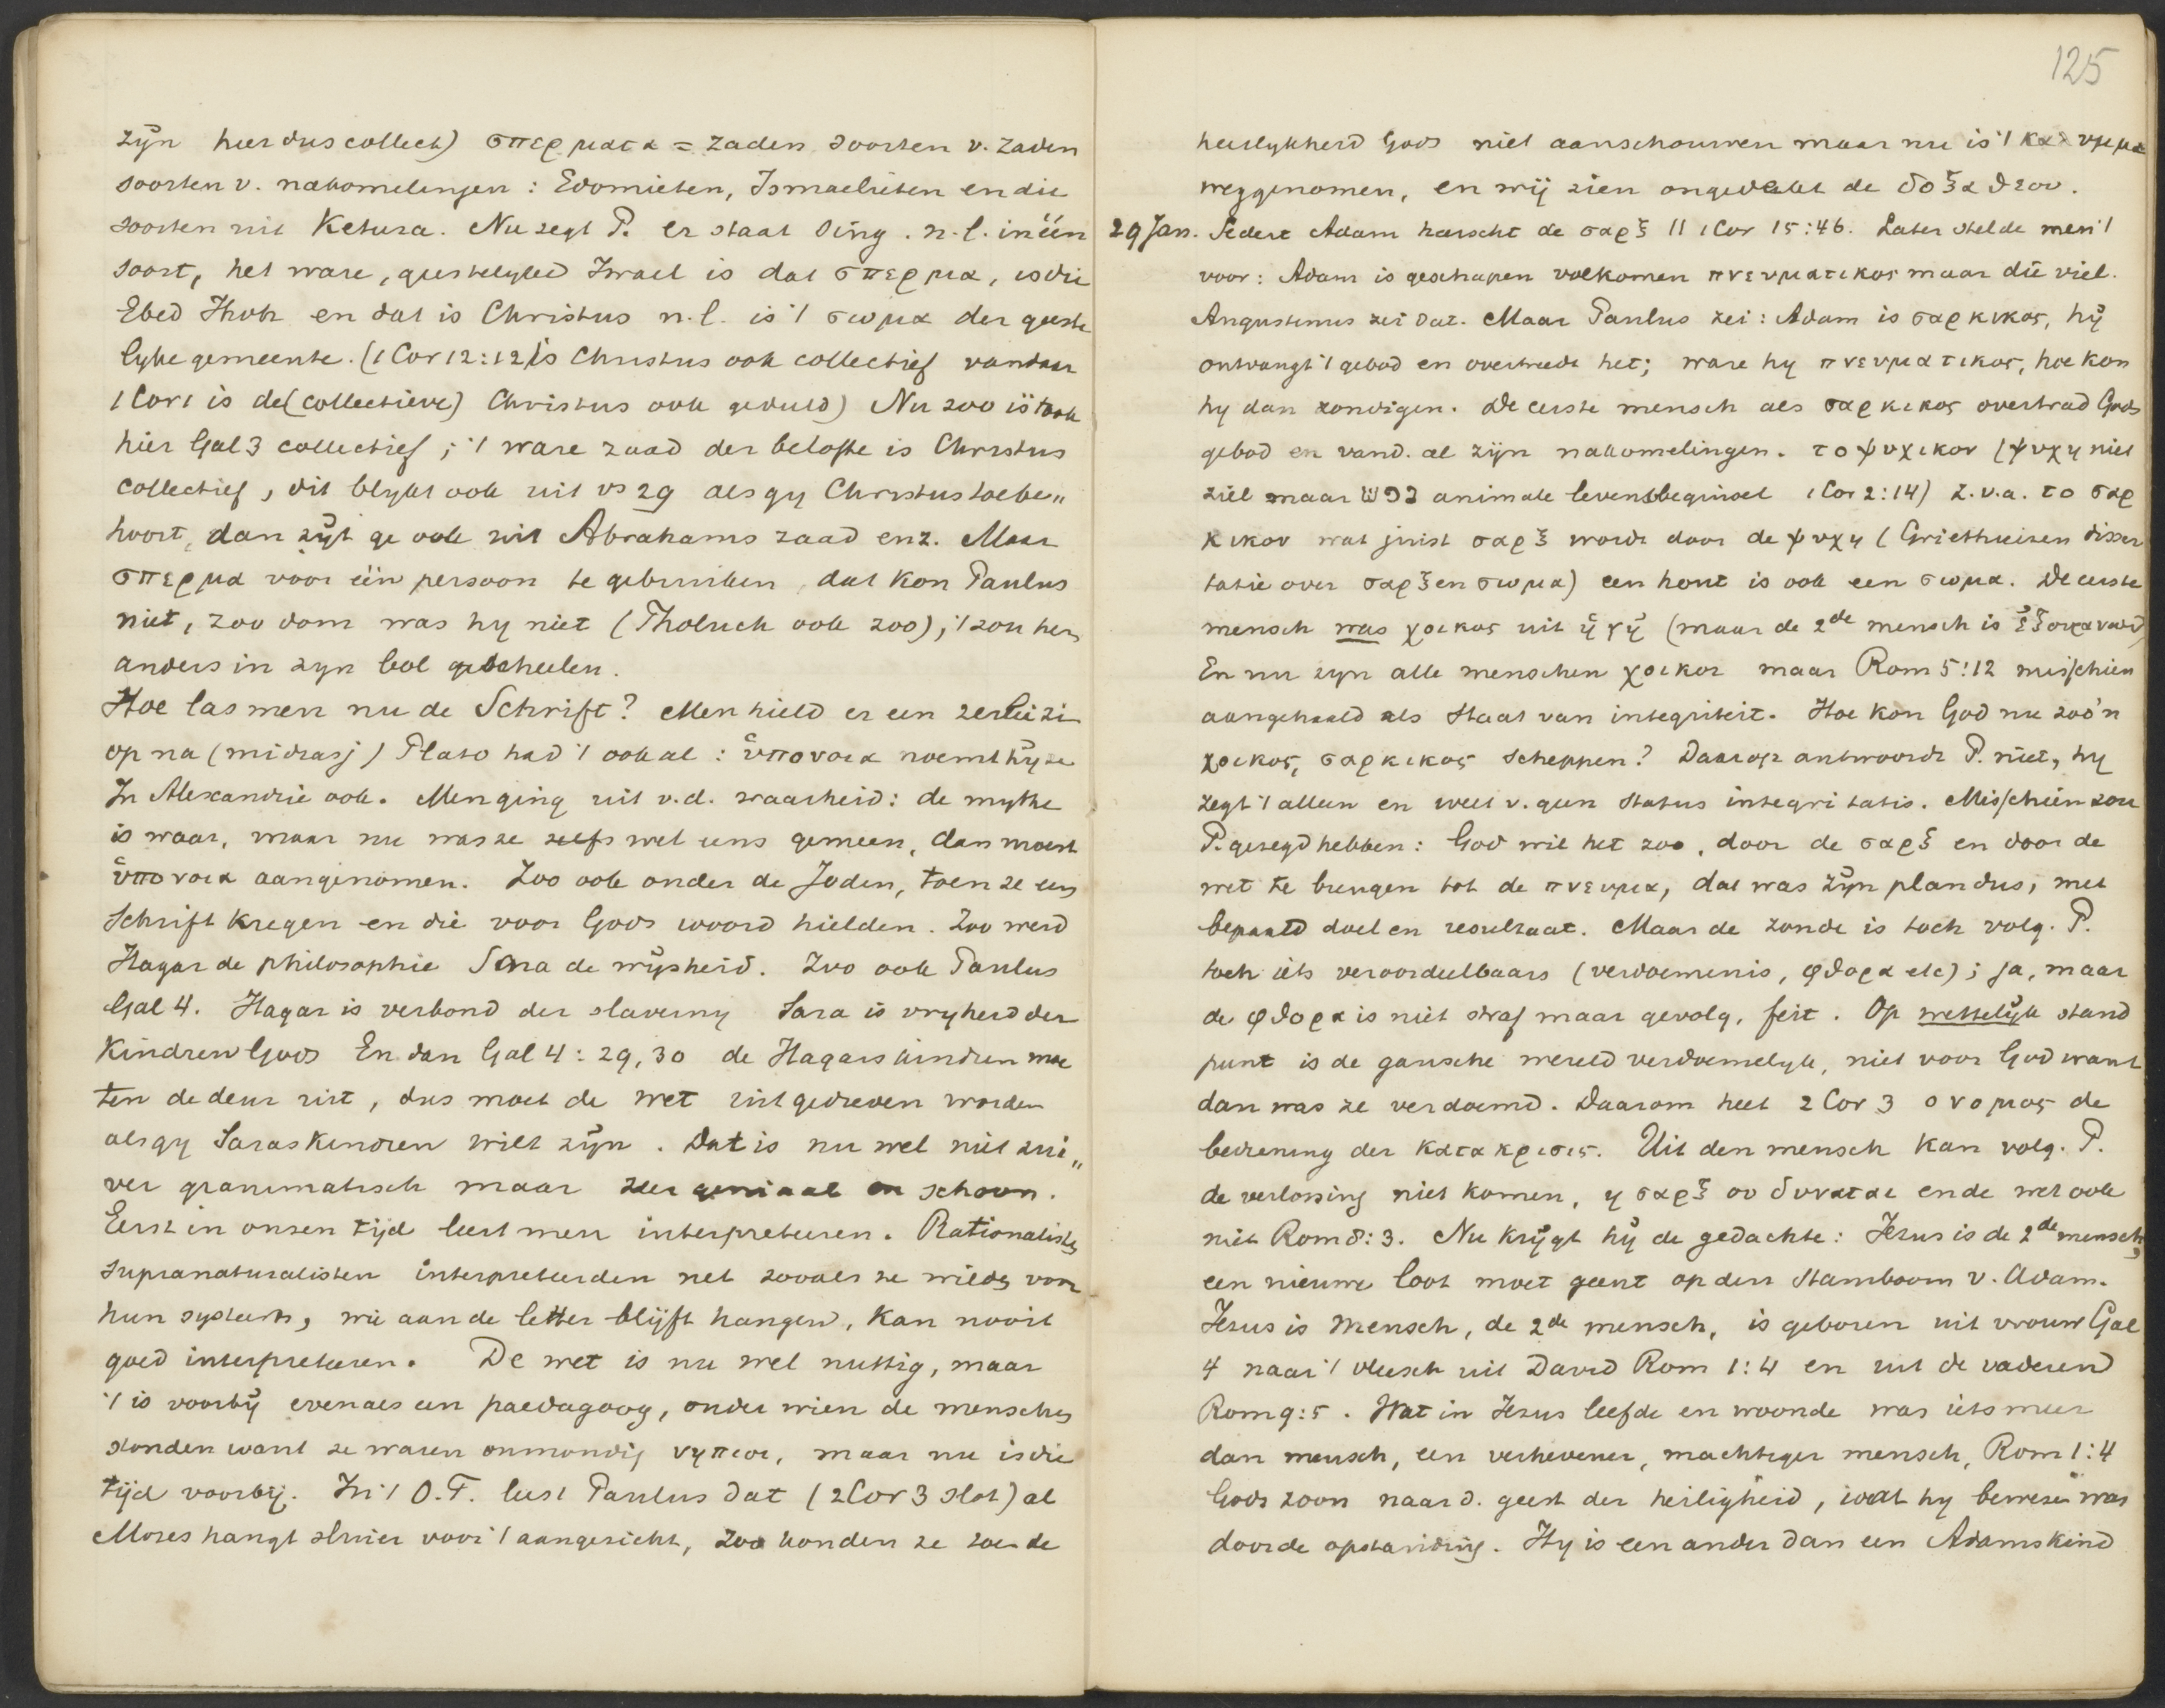 zijn hier dus collect) σπερματα = zaden soorten v. zaden
soorten v. nakomelingen: Edomieten, Ismaelieten en die
soorten uit Ketura. Nu zegt P. er staat sing. n.l. in één
soort, het ware, geestelyke Israel is dat σπερμα, is die
Ebed Jhvh en dat is Christus n.l. is 't σωμα der geeste
lyke gemeente. (1 Cor 12:12 is Christus ook collectief vandaar
1 Cor 1 is de (collectieve) Christus ook gedeeld) Nu zoo is 't ook
hier Gal 3 collectief; 't ware zaad der belofte is Christus
collectief, dit blykt ook uit vs 29 als gy Christus toebe„
hoort, dan zijt ge ook uit Abrahams zaad enz. Maar
σπερμα voor één persoon te gebruiken, dat kon Paulus
niet, zoo dom was hy niet (Tholuck ook zoo), 't zou hem
anders in zyn bol gescheelen.
Hoe las men nu de Schrift? Men hield er een
op na (midrasj) Plato had 't ook al: ὑπονοια noemt hy ze
In Alexandrie ook. Men ging uit v.d. waarheid: de mythe
is waar, maar nu was ze zelfs wel eens gemeen, dan moest
ὑπονοια aangenomen. Zoo ook onder de Joden, toen ze een
Schrift kregen en die voor Gods woord hielden. Zoo werd
Hagar de philosophie Sara de wijsheid. Zoo ook Paulus
Gal 4. Hagar is verbond der slaverny Sara is vryheid der
Kindren Gods En dan Gal 4: 29, 30 de Hagars kindren moe
ten de deur uit, dus moet de wet uitgedreven worden
als gy Saras Kindren wilt zijn. Dat is nu wel niet zui„
ver grammatisch maar zeer geniaal en schoon.
Eerst in onsen tijd leert men interpreteeren. Rationalisten
supranaturalisten interpreteerden net zooals ze wilden voor
hun systeem, wie aan de letter blijft hangen, kan nooit
goed interpreteeren. De wet is nu wel nuttig, maar
't is voorbij evenals een paedagoog, onder wien de menschen
stonden want ze waren onmondig νηπιοι, maar nu is die
tijd voorbij. In 't O.T. leest Paulus dat (2 Cor 3 slot) al
Mozes hangt sluier voor 't aangezicht, zoo konden ze toen de
125
heerlykheid Gods niet aanschouwen maar nu is 't καλυμμα
weggenomen, en wij zien ongedekt de δοξα θεου.
29 Jan. Sedert Adam heerscht de σαρξ || 1 Cor 15:46. Later stelde men 't
voor: Adam is geschapen volkomen πνευματικος maar die viel.
Augustinus zei dat. Maar Paulus zei: Adam is σαρκικος, hij
ontvangt 't gebod en overtreedt het; ware hy πνευματικος, hoe kon
hy dan zondigen. De eerste mensch als σαρκικος overtrad Gods
gebod en vand. al zijn nakomelingen. το ψυχικον (ψυχη niet
ziel maar נפש animale levensbeginsel 1 Cor 2:14) z.v.a. το σαρ
κικον wat juist σαρξ wordt door de ψυχη (Griethuisen disser
tatie over σαρξ en σωμα) een hout is ook een σωμα. De eerste
mensch was χοικος uit ἡ γῆ (maar de 2de mensch is ἐξ οὐρανου)
En nu zyn alle menschen χοικοι maar Rom 5:12 misschien
aangehaald als Staat van integriteit. Hoe kon God nu zoo'n
χοικος, σαρκικος scheppen? Daarop antwoordt P. niet, hy
zegt 't alleen en weet v. geen Status integritatis. Misschien zou
P. gezegd hebben: God wil het zoo, door de σαρξ en door de
wet te brengen tot de πνευμα, dat was zijn plan dus, met
bepaald doel en resultaat. Maar de zonde is toch volg. P.
toch iets veroordeelbaars (verdoemenis, φθορα etc); ja, maar
de φθορα is niet straf maar gevolg, feit. Op wettelijk stand
punt is de gansche wereld verdoemelyk, niet voor God want
dan was ze verdoemd. Daarom heet 2 Cor 3 ο νομος de
bediening der κατακρισις. Uit den mensch kan volg. P.
de verlossing niet komen, η σαρξ ου δυναται en de wet ook
niet Rom 8:3. Nu krijgt hij de gedachte: Jezus is de 2de mensch,
een nieuwe loot moet geent op den Stamboom v. Adam.
Jezus is mensch, de 2de mensch, is geboren uit vrouw Gal
4 naar 't vleesch uit David Rom 1:4 en uit de vaderen
Rom 9:5. Wat in Jezus leefde en woonde was iets meer
dan mensch, een verhevener, machtiger mensch, Rom 1:4
Gods zoon naar d. geest der heiligheid, wat hy bewezen was
door de opstanding. Hy is een ander dan een Adamskind